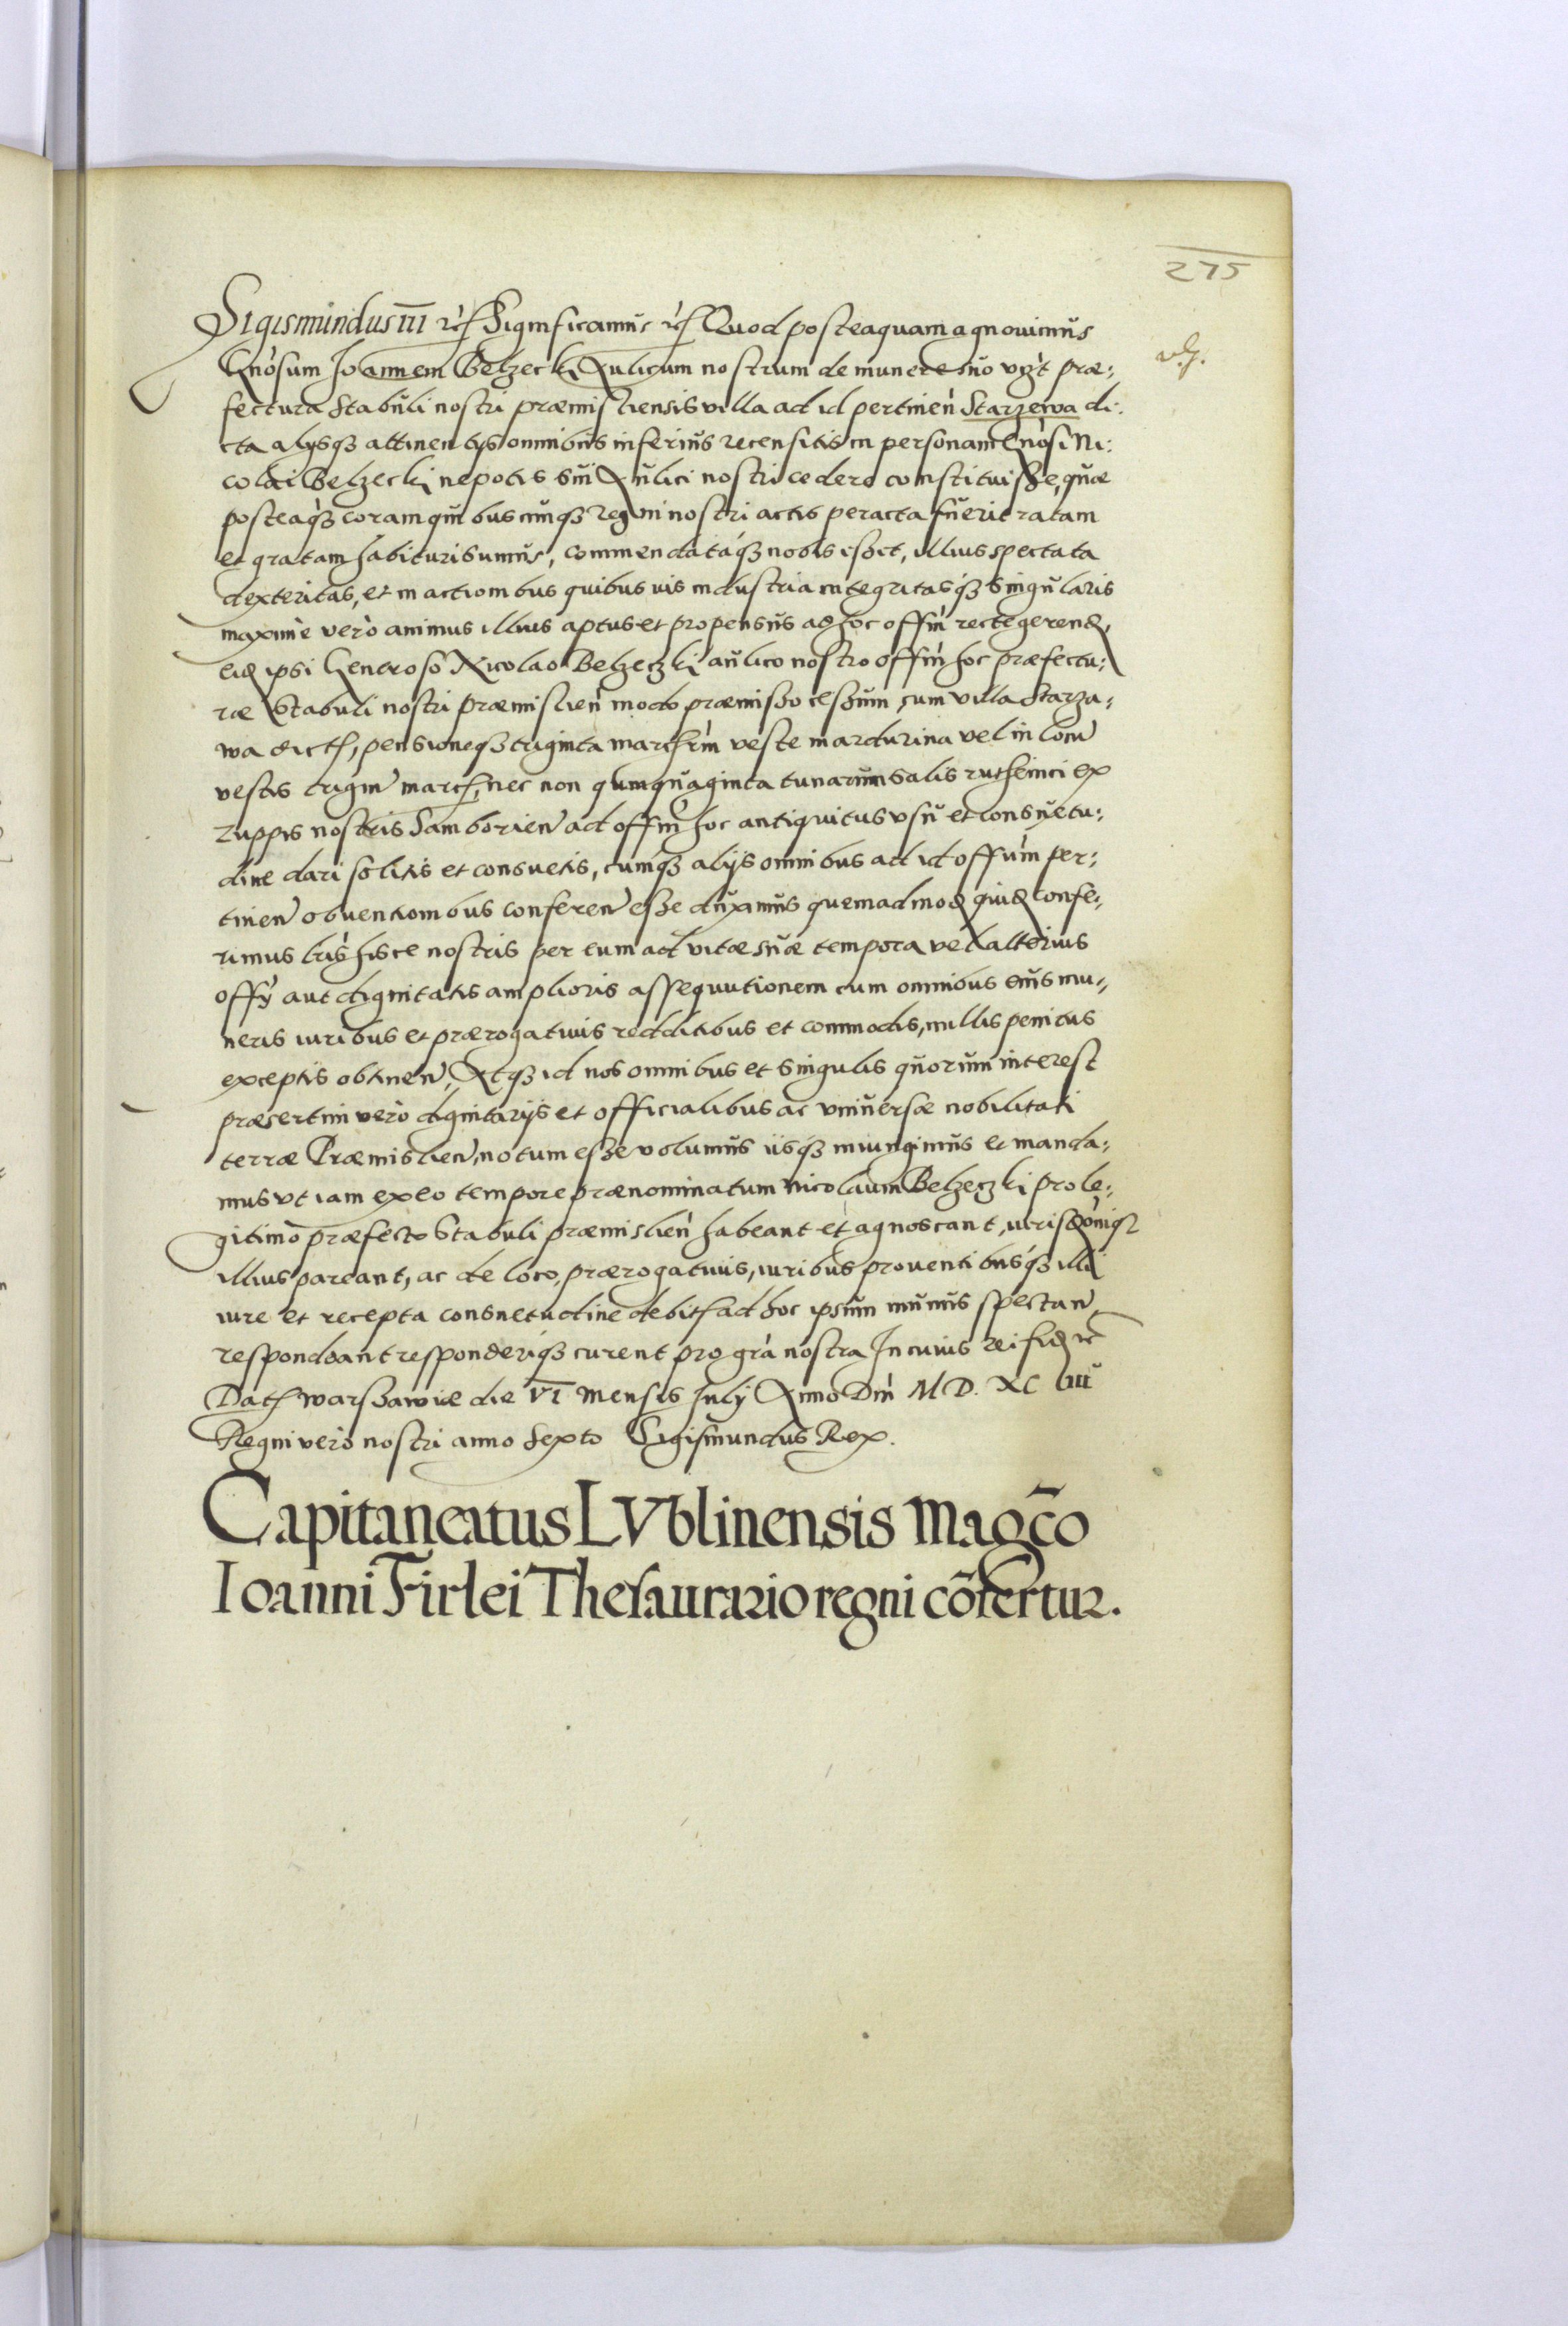 275
Sigismundus III etc Significamus etc Quod posteaquam agnouimus
Gnosum Joannem Belzecki Aulicum nostrum de munere suo vzt præ:
fectura Stabuli nostri præmisliensis villa ad id pertinen Starzewa di:
cta alysq3 attinentys omnibus inferius recensitis in personam Gnosi Ni:
colai Belzecki nepotis sui Aulici nostri cedere constituisse, quæ
posteaq3 coram quibuscunq3 Regni nostri actis peracta fuerit ratam
et gratam habituri sumus, commendataq3 nobis esset, illius spectata
dexteritas, et in actionibus quibusuis industria integritasq3 singularis
maxime vero animus illius aptus et propensus ad hoc offm recte gerend,
eid ipsi Generoso Nicolao Belzeczki aulico nostro offm hoc præfectu:
ræ Stabuli nostri præmislien modo præmisso cessum cum villa Starza:
wa dict, pensioneq3 triginta march rm veste mardurina vel in locu
vestis trigin march, nec non quinquaginta tunarum salis ruthenici ex
zuppis nostris Samborien ad offm hoc antiquitus usu et consuetu:
dine dari solitis et consuetis, cumq3 alijs omnibus ad id offum per:
tinen obuentionibus conferen esse duximus quemadmod quid confe:
rimus lris hisce nostris per eum ad vitæ suæ tempora vel alterius
offy aut dignitatis amplioris assequutionem cum omnibus eius mu:
neris iuribus et prærogatiuis redditibus et commodis, nullis penitus
exceptis obtinen, Atq3 id nos omnibus et singulis quorum interest
præsertim vero dignitarijs et officialibus ac vniuersæ nobilitati
terræ Præmislien, notum esse volumus iisq3 iniungimus et manda:
mus vt iam ex eo tempore prænominatum Nicolaum Belzeczki pro le:
gitimo præfecto Stabuli præmislien habeant et agnoscant, iurisdoniq3
illius pareant, ac de loco, prærogatiuis, iuribus prouentibusq3 illi
iure et recepta consuetudine debit ad hoc ipsum munus spectan
respondeant responderiq3 curent pro gra nostra In cuius rei fid etc
Dat Warssawiæ die VI Mensis July Anno Dni M D. XC IIII
Regni vero nostri anno sexto Sigismundus Rex.
Capitaneatus LVblinensis Magco
Ioanni Firlei Thesaurario regni cofertur.